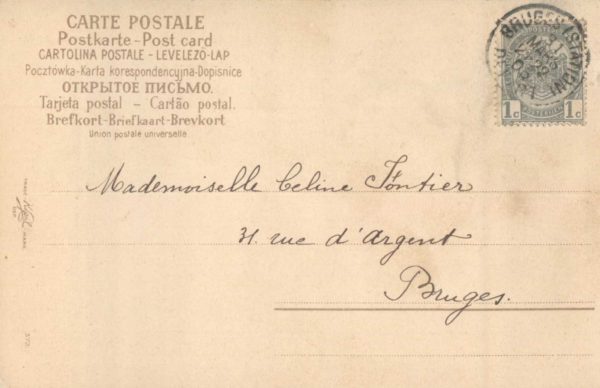 CARTE POSTALE
Postkarte-Post card
CARTOLINA POSTALE - LEVELEZÖ-LAP
Pocztówka-Karta korespondencyjna-Dopisnice
ОТКРЫТОЕ ПИСЬМО.
Tarjeta postal - Cartão postal.
Brefkort-Briefkaart-Brevkort
Union postale universelle.
BRUGES (STATION)
1c 1c
Mademoiselle Celine Fontier
31. rue d'Argent
Bruges.